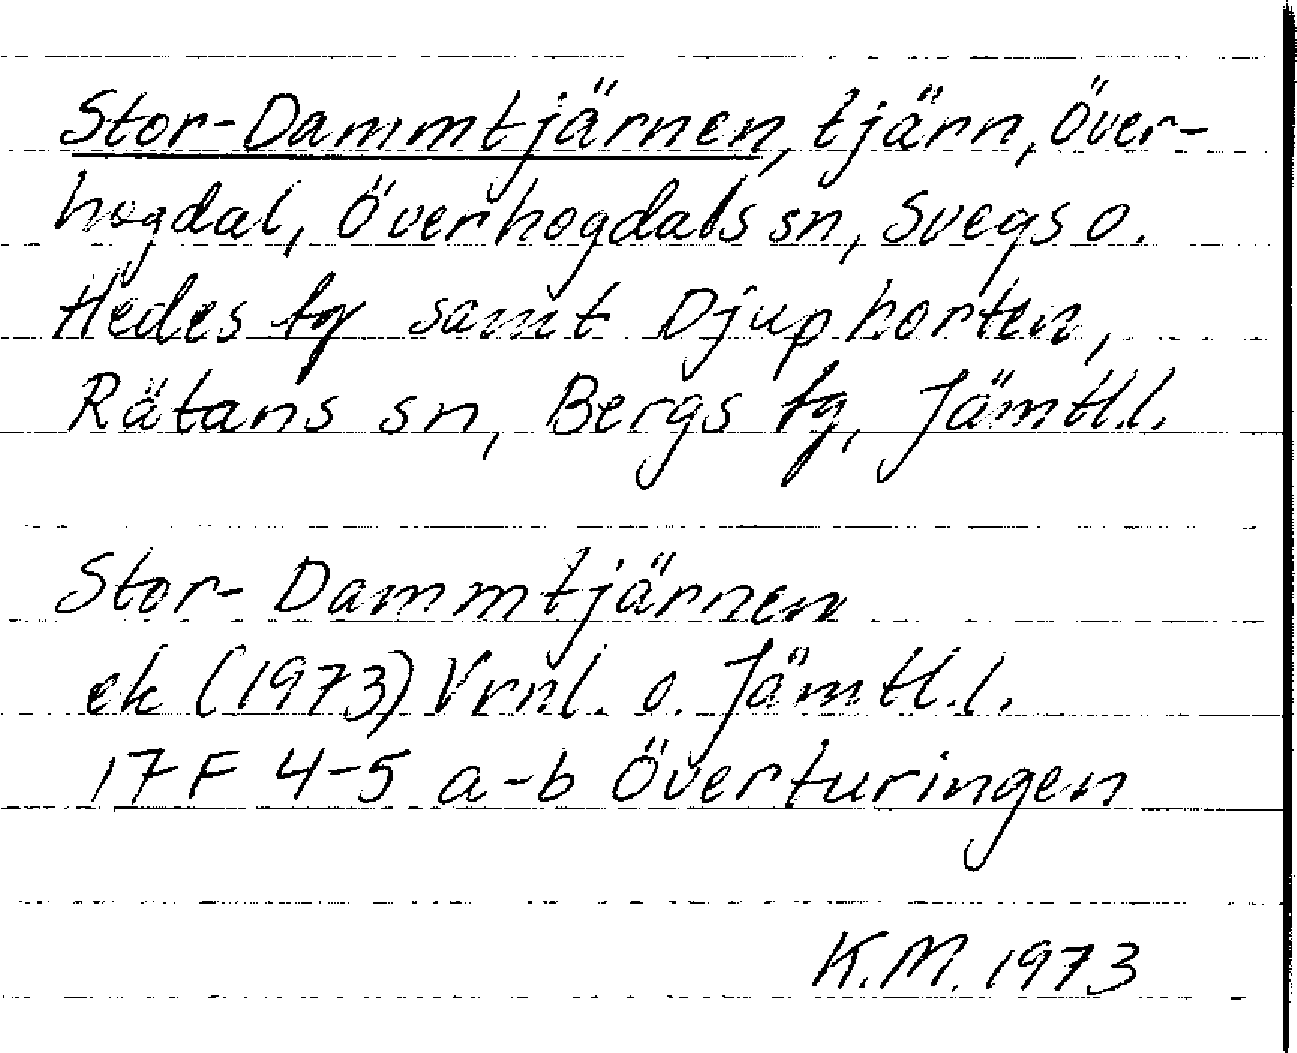 Stor-Dammtjärnen, tjärn, Över-
hogdal, Överhogdals sn, Svegs o.
Hedes tg samt Djuphorten,
Rätans sn, Bergs tg, Jämtl.l.
Stor-Dammtjärnen
ek (1973) Vrnl. o. Jämtl.l.
17F 4-5 a-b Överturingen
K.M. 1973